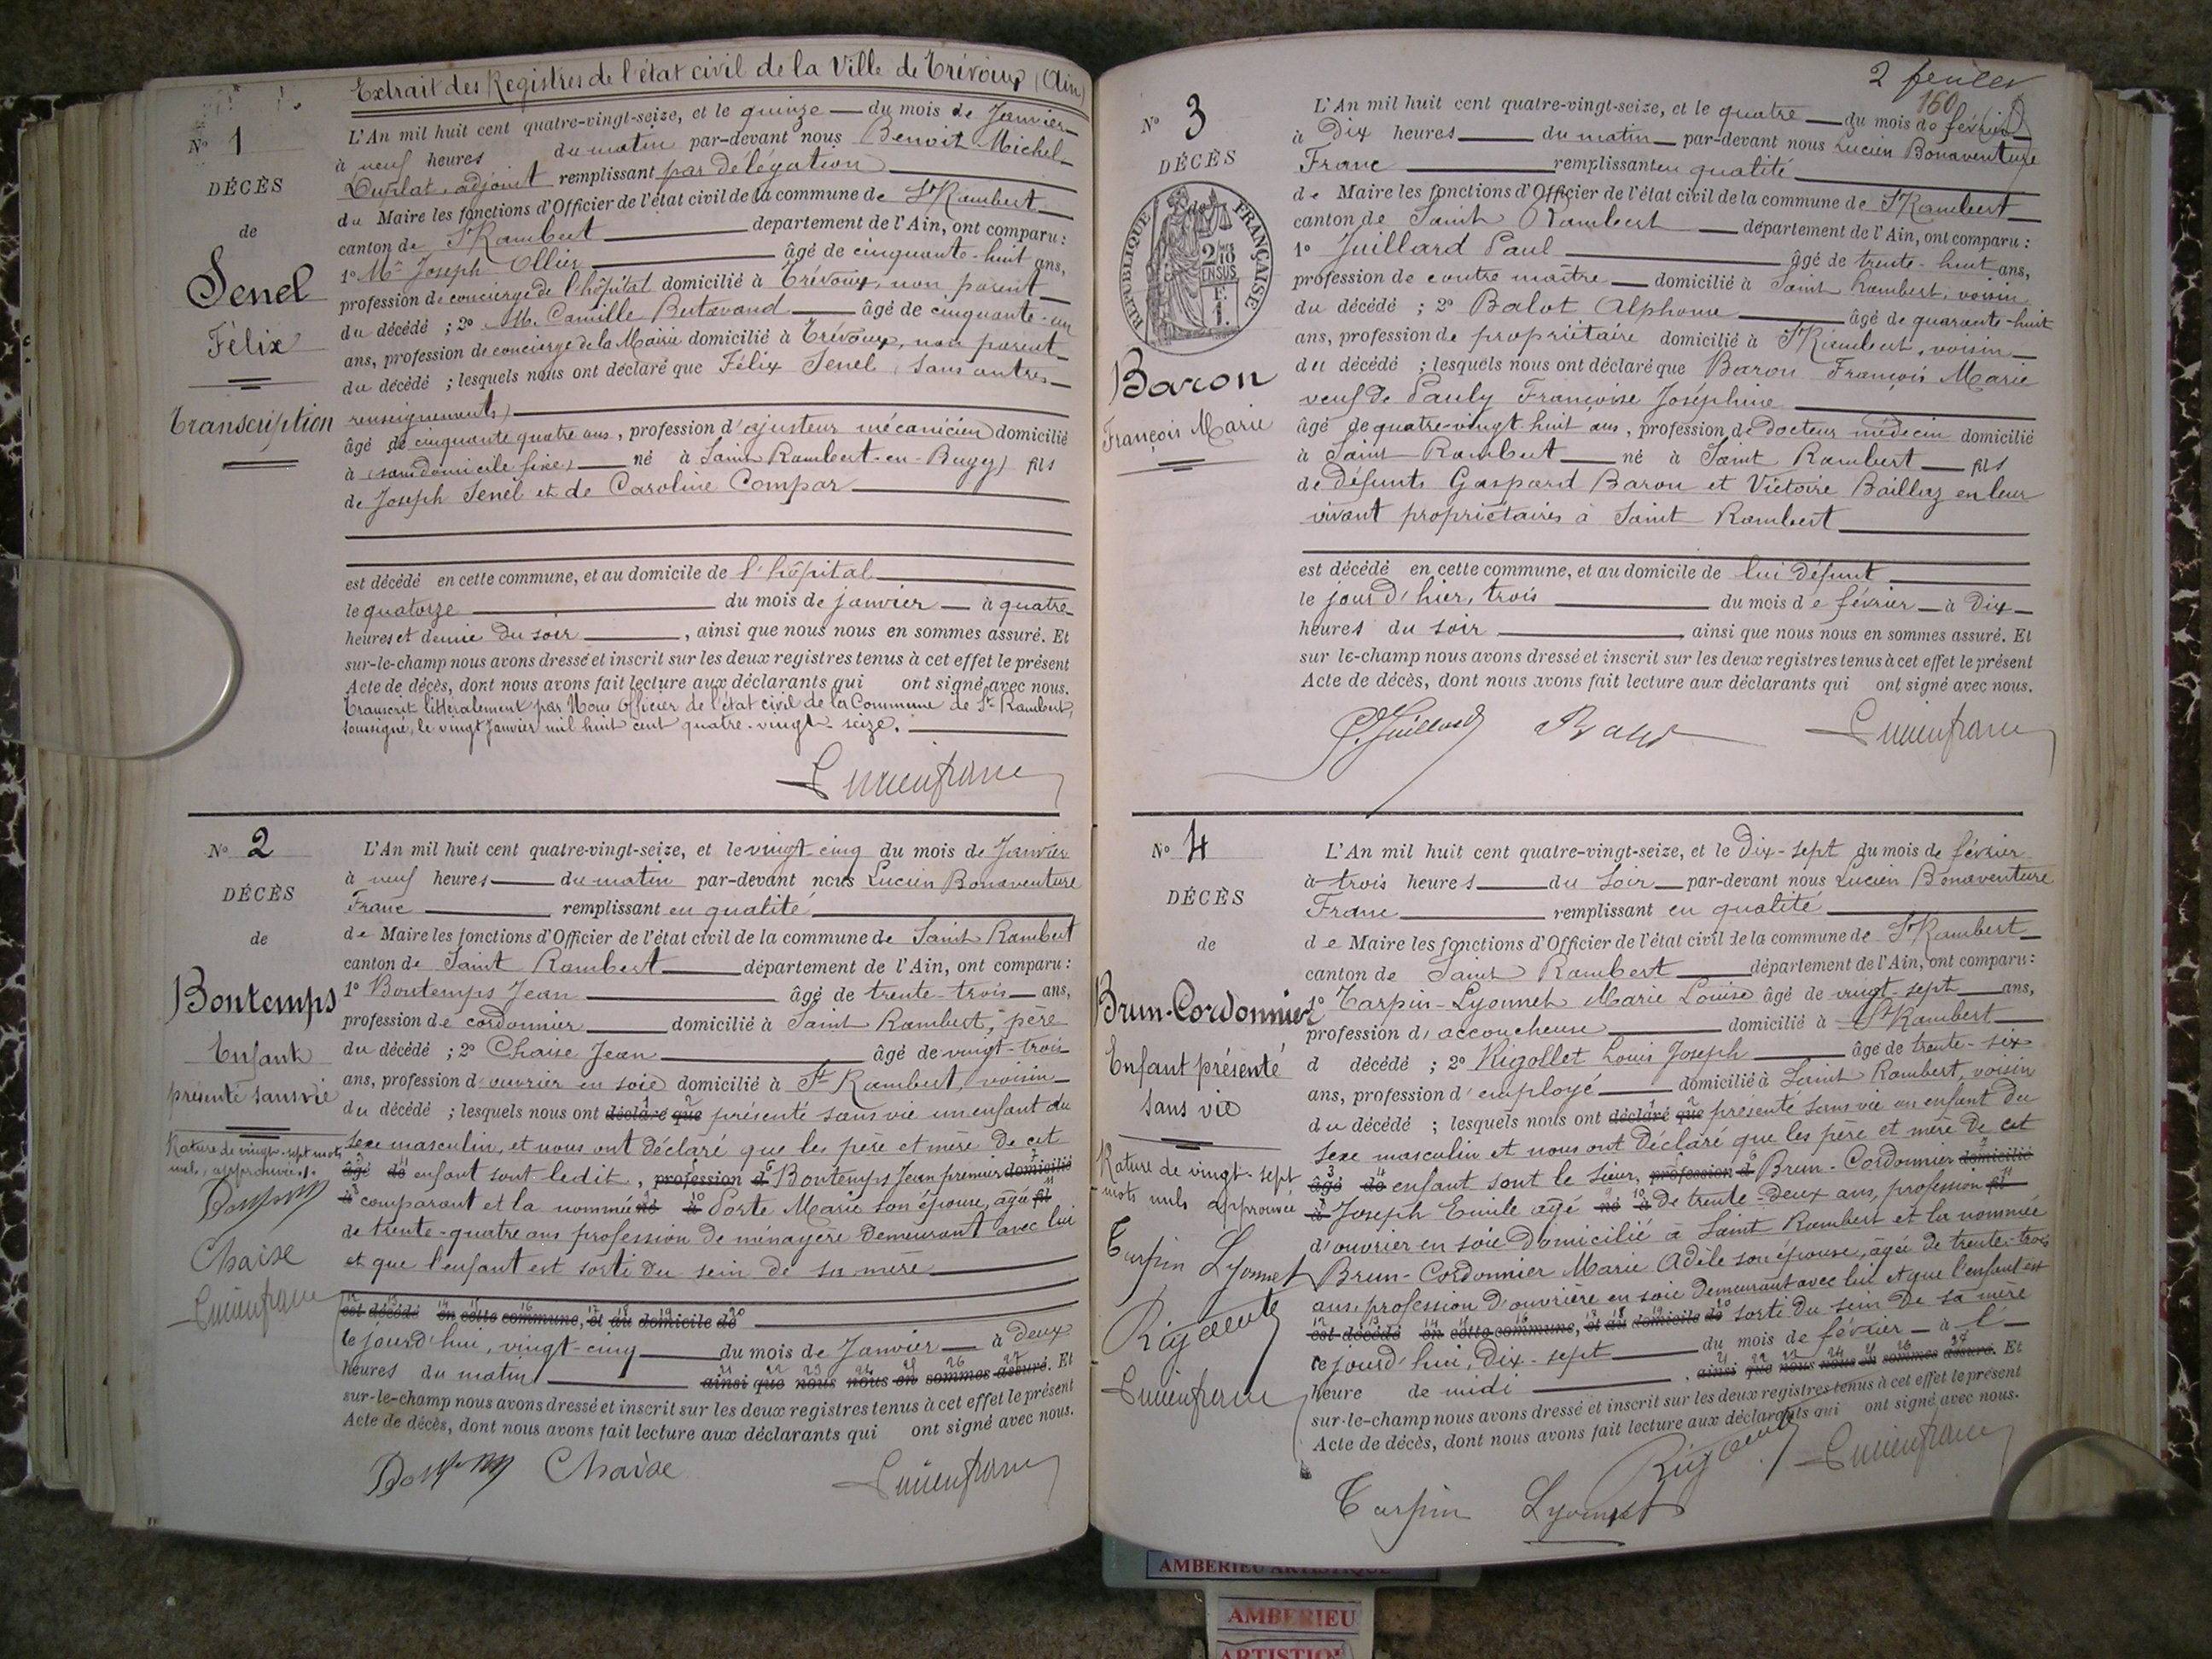 Extrait des Registres de l'état civil de la Ville de Trévoux (Ain)
N° 1
DÉCÈS
de
Senel
Félix
Transcription
L'An mil huit cent quatre-vingt-seize, et le quinze du mois de Janvier
à neuf heures du matin par-devant nous Benoit Michel
adjoint remplissant par délégation
du Maire les fonctions d'Officier de l'état civil de la commune de St Rambert
canton de St Rambert département de l'Ain, ont comparu :
1° Mr Joseph Ollier âgé de cinquante-huit ans,
profession de concierge de l'hôpital domicilié à Trévoux, non parent
du décédé ; 2° M. Camille Butavand âgé de cinquante-un
ans, profession de concierge de la Mairie domicilié à Trévoux, non parent
du décédé ; lesquels nous ont déclaré que Félix Senel (sans autres
renseignements)
âgé de cinquante quatre ans, profession d'ajusteur mécanicien domicilié
à (sans domicile fixe) né à Saint Rambert-en-Bugey) fils
de Joseph Senel et de Caroline Compar
est décédé en cette commune, et au domicile de l'hôpital
le quatorze du mois de janvier à quatre
heures et demie du soir , ainsi que nous nous en sommes assuré. Et
sur-le-champ nous avons dressé et inscrit sur les deux registres tenus à cet effet le présent
Acte de décès, dont nous avons fait lecture aux déclarants qui ont signé avec nous.
Transcrit littéralement par Nous Officier de l'état civil de la Commune de St Rambert,
soussigné, le vingt Janvier mil huit cent quatre-vingt-seize.
Lucienfranc
N° 2
DÉCÈS
de
Bontemps
Enfant
présenté sans vie
Rature de vingt-sept mots
nuls, approuvée.
Chaise
Lucienfranc
L'An mil huit cent quatre-vingt-seize, et le vingt cinq du mois de Janvier
à neuf heures du matin par-devant nous Lucien Bonaventure
Franc remplissant en qualité
de Maire les fonctions d'Officier de l'état civil de la commune de Saint Rambert
canton de Saint Rambert département de l'Ain, ont comparu :
1° Bontemps Jean âgé de trente-trois ans,
profession de cordonnier domicilié à Saint Rambert, père
du décédé ; 2° Chaise Jean âgé de vingt-trois
ans, profession d'ouvrier en soie domicilié à St Rambert, voisin
du décédé ; lesquels nous ont déclaré que présenté sans vie un enfant du
sexe masculin, et nous ont déclaré que les père et mère de cet
âgé de enfant sont ledit , profession d Bontemps Jean premier domicilié
à comparant et la nommée né à Porte Marie son épouse, agée fil
de trente-quatre ans profession de ménagère demeurant avec lui
et que l'enfant est sorti du sein de sa mère
est décédé en cette commune, et au domicile de
le jourd'hui, vingt-cinq du mois de Janvier à deux
heures du matin ainsi que nous nous en sommes assuré. Et
sur-le-champ nous avons dressé et inscrit sur les deux registres tenus à cet effet le présent
Acte de décès, dont nous avons fait lecture aux déclarants qui ont signé avec nous.
Chaise Lucienfranc
2 février
160
N° 3
DÉCÈS
RÉPUBLIQUE FRANÇAISE
2/10 EN SUS
Baron
François Marie
L'An mil huit cent quatre-vingt-seize, et le quatre du mois de février
à Dix heures du matin par-devant nous Lucien Bonaventure
Franc remplissant en qualité
de Maire les fonctions d'Officier de l'état civil de la commune de St Rambert
canton de Saint Rambert département de l'Ain, ont comparu :
1° Juillard Paul âgé de trente-huit ans,
profession de contre maître domicilié à Saint Rambert, voisin
du décédé ; 2° Balot Alphonse âgé de quarante-huit
ans, profession de propriétaire domicilié à St Rambert, voisin
du décédé ; lesquels nous ont déclaré que Baron François Marie
veuf de Pauly Françoise Joséphine
âgé de quatre-vingt huit ans, profession de docteur médecin domicilié
à Saint Rambert né à Saint Rambert fils
de défunts Gaspard Baron et Victoire Baillaz en leur
vivant propriétaires à Saint Rambert
est décédé en cette commune, et au domicile de lui défunt
le jour d'hier, trois du mois de février à Dix
heures du soir ainsi que nous nous en sommes assuré. Et
sur le-champ nous avons dressé et inscrit sur les deux registres tenus à cet effet le présent
Acte de décès, dont nous avons fait lecture aux déclarants qui ont signé avec nous.
P. Juillard Lucienfranc
N° 4
DÉCÈS
de
Brun-Cordonnier
Enfant présenté
sans vie
Rature de vingt-sept
mots nuls approuvée
Tarpin Lyonnet
Lucienfranc
L'An mil huit cent quatre-vingt-seize, et le Dix-sept du mois de février
à trois heures du soir par-devant nous Lucien Bonaventure
Franc remplissant en qualité
de Maire les fonctions d'Officier de l'état civil de la commune de St Rambert
canton de Saint Rambert département de l'Ain, ont comparu :
1° Tarpin-Lyonnet Marie Louise âgé de vingt-sept ans,
profession d'accoucheuse domicilié à St Rambert
d décédé ; 2° Rigollet Louis Joseph âgé de trente-six
ans, profession d'employé domicilié à Saint Rambert, voisin
du décédé ; lesquels nous ont déclaré que présenté sans vie un enfant du
sexe masculin et nous ont déclaré que les père et mère de cet
âgé de enfant sont le sieur, profession d Brun-Cordonnier domicilié
à Joseph Emile agé né à de trente-deux ans, profession fil
d'ouvrier en soie domicilié à Saint Rambert et la nommée
Brun-Cordonnier Marie Adèle son épouse, âgée de trente-trois
ans, profession d'ouvrière en soie demeurant avec lui et que l'enfant est
est décédé en cette commune, et au domicile de sorti du sein de sa mère
le jourd'hui, Dix-sept du mois de février à l'
heure de midi , ainsi que nous nous en sommes assuré. Et
sur-le-champ nous avons dressé et inscrit sur les deux registres tenus à cet effet le présent
Acte de décès, dont nous avons fait lecture aux déclarants qui ont signé avec nous.
Lucienfranc
Tarpin Lyonnet
AMBERIEU ARTISTIQUE
AMBERIEU
ARTISTIQ